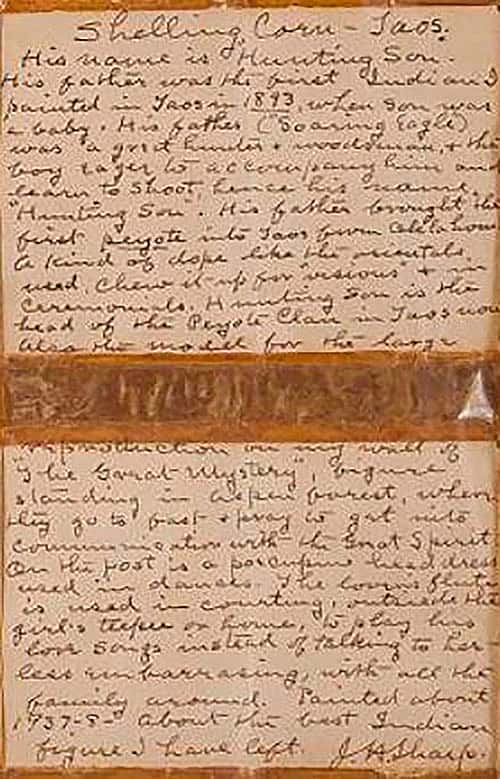 Shelling Corn - Taos.
His name is "Hunting Son.
His father was the first Indian I
painted in Taos in 1893, when son was
a baby. His father ("Soaring Eagle)
was a great hunter & woodsman, & the
boy eager to accompany him and
learn to shoot, hence his name,
"Hunting Son". His father brought the
first peyote into Taos from Oklahoma
a kind of dope like the orientals
used, chew it up for "visions" & in
ceremonials. Hunting Son is the
head of the Peyote Clan in Taos now
Also the model for the large
reproduction on my wall of
"The Great Mystery", figure
standing in aspen forest, where
they go to fast & pray to get into
communication with the Great Spirit
On the post is a porcupine head dress
used in dances. The lovers flute
is used in courting, outside the
girl's teepee or home, to play his
love songs instead of talking to her
less embarrasing, with all the
family around. Painted about
1937-8- About the best Indian
figure I have left. J.H. Sharp.